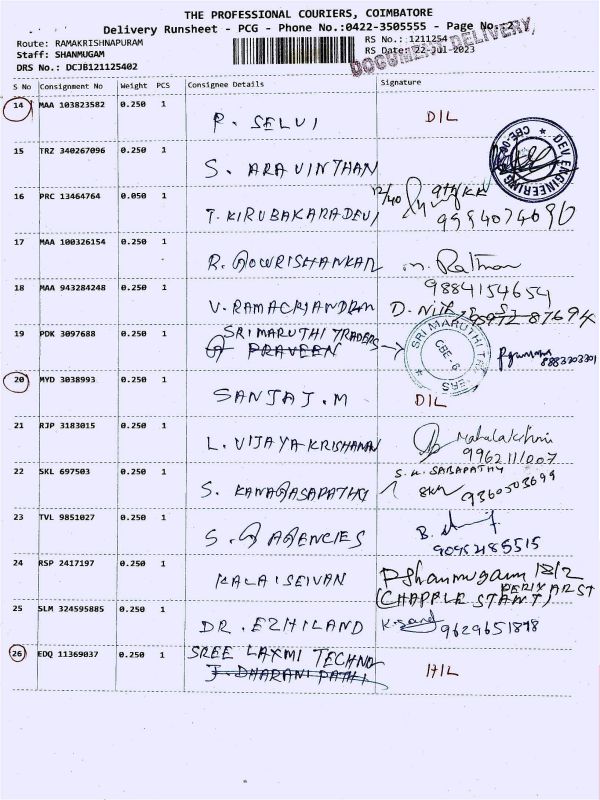 THE PROFESSIONAL COURIERS, COIMBATORE
Delivery Runsheet - PCG - Phone No.:0422-3505555 - Page No.:2
DOCUMENT DELIVERY
Route: RAMAKRISHNAPURAM
Staff: SHANMUGAM
DRS No.: DCJB121125402
RS No.: 1211254
RS Date: 22-Jul-2023
S No Consignment No Weight PCS Consignee Details Signature
14 MAA 103823582 0.250 1 P. SELVI DIL
15 TRZ 340267096 0.250 1 S. ARAVINTHAN DEV ENGINEERING
16 PRC 13464764 0.050 1 T. KIRUBAKARADEVI 12/40 9994074690
17 MAA 100326154 0.250 1 R. GOWRISHANKAR
18 MAA 943284248 0.250 1 V. RAMACHANDRAN 9884154654
19 PDK 3097688 0.250 1 SRI MARUTHI TRADERS
PRAVEEN SRI MARUTHI TRADERS CBE-6 8883203301
20 MYD 3038993 0.250 1 SANJAJ.M DIL
21 RJP 3183015 0.250 1 L. VIJAYA KRISHANAN Mahalakshmi
9962111007
22 SKL 697503 0.250 1 S. KANAGASAPATHI S.K. SABAPATHY
9360503699
23 TVL 9851027 0.250 1 S. G AGENCIES B.
9095285515
24 RSP 2417197 0.250 1 KALAISEIVAN P Shanmugam 18/2
(CHAPPLE START) PERIYAR ST
25 SLM 324595885 0.250 1 DR. EZHILAND 9629651878
26 EDQ 11369037 0.250 1 SREE LAXMI TECHNO
J. DHARANI PATHI DIL